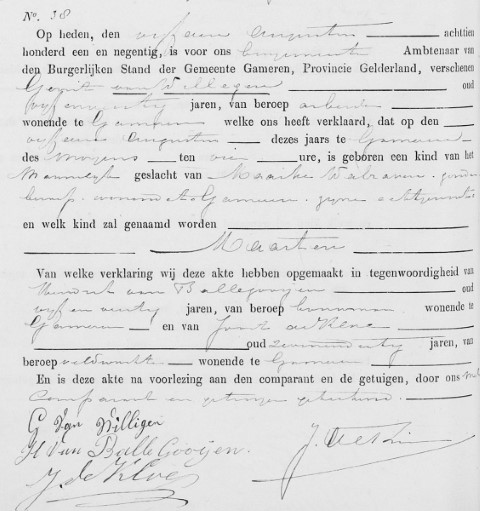 No. 38
Op heden, den vijfden Augustus achttien
honderd een en negentig, is voor ons Ambtenaar van
den Burgerlijken Stand der Gemeente Gameren, Provincie Gelderland, verschenen
Gerrit van Willigen oud
jaren, van beroep arbeider
wonende te Gameren welke ons heeft verklaard, dat op den
Augustus dezes jaars te Gameren
des morgens ten vier ure, is geboren een kind van het
Mannelijk geslacht van Maaike
beroep wonende te Gameren zijne echtgenoote
en welk kind zal genaamd worden
Maarten
Van welke verklaring wij deze akte hebben opgemaakt in tegenwoordigheid van
van Ballegooijen oud
vijf en veertig jaren, van beroep wonende te
Gameren en van de Kloe
oud jaren, van
beroep veldwachter wonende te Gameren
En is deze akte na voorlezing aan den comparant en de getuigen, door ons met
comparant en getuigen geteekend.
G Van Willigen
H Van Ballegooijen.
J. de Kloe